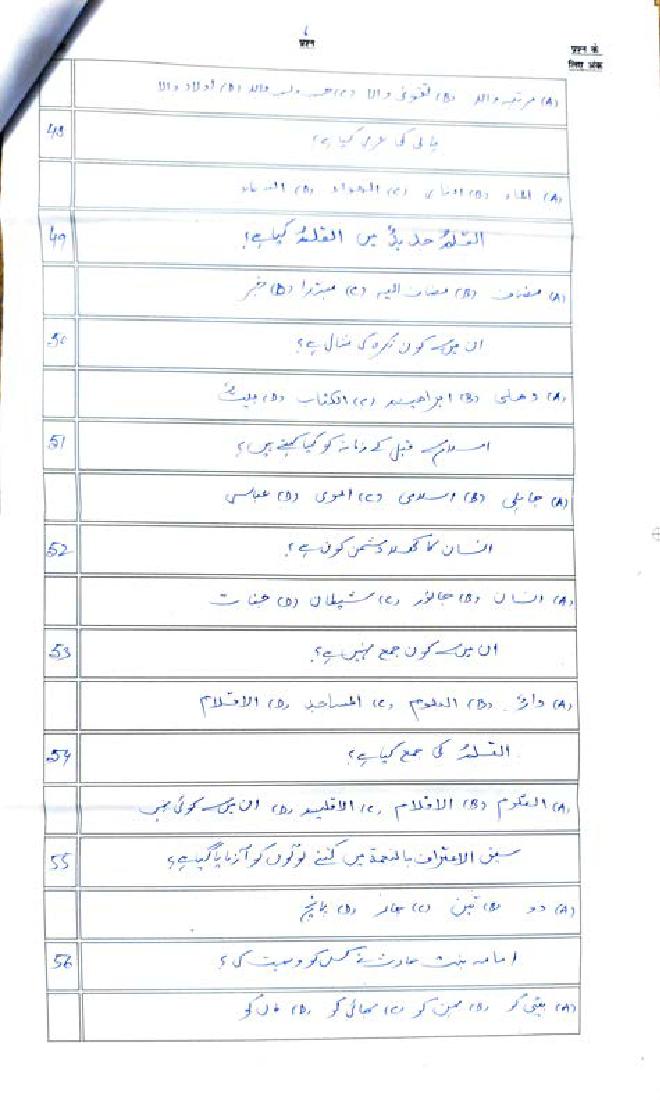 प्रश्न
प्रश्न के
लिए अंक
(A) مرتبہ والا (B) تقویٰ والا (C) حسب ونسب والا (D) اولاد والا
48 پانی کی عربی کیا ہے؟
(A) الماء (B) النار (C) الھواء (D) السماء
49 القلمُ جدیدٌ میں القلمُ کیا ہے؟
(A) مضاف (B) مضاف الیہ (C) مبتدا (D) خبر
50 ان میں سے کون نکرہ کی مثال ہے؟
(A) دھلی (B) ابراھیم (C) الکتاب (D) بیتٌ
51 اسلام سے قبل کے زمانہ کو کیا کہتے ہیں؟
(A) جاہلی (B) اسلامی (C) اموی (D) عباسی
52 انسان کا کھلا دشمن کون ہے؟
(A) انسان (B) جانور (C) شیطان (D) جنات
53 ان میں سے کون جمع نہیں ہے؟
(A) دارٌ (B) العلوم (C) المساجد (D) الاقلام
54 القلمُ کی جمع کیا ہے؟
(A) القلوم (B) الاقلام (C) الاقلیم (D) ان میں سے کوئی نہیں
55 سبق الاعتراف بالنعمة میں کتنے لوگوں کو آزمایا گیا ہے؟
(A) دو (B) تین (C) چار (D) پانچ
56 امامہ بنت حارث نے کس کو وصیت کی؟
(A) بیٹی کو (B) بہن کو (C) بھائی کو (D) ماں کو